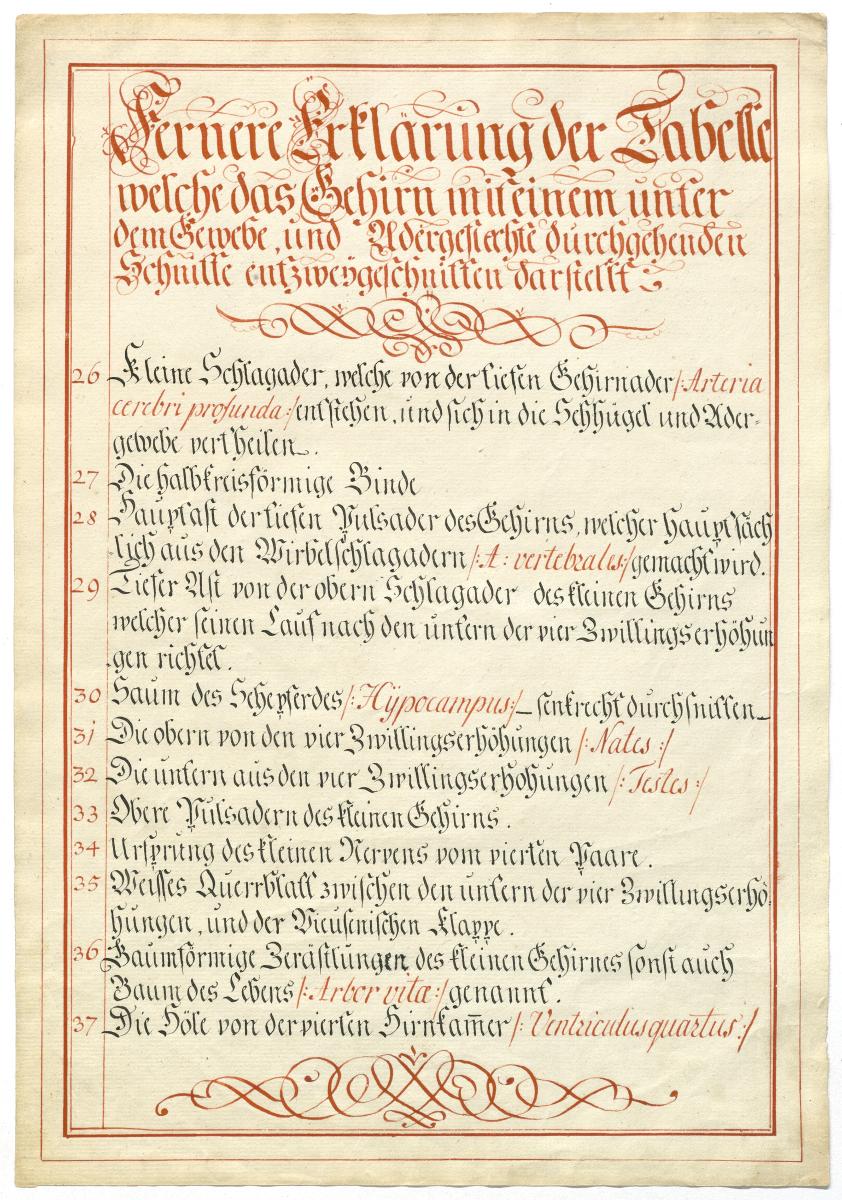 Fernere Erklärung der Tabelle
welche das Gehirn mit einem unter
dem Gewebe, und Adergeflechte durchgehenden
Schnitte entzweygeschnitten darstellt
26 Kleine Schlagader, welche von der tiefen Gehirnader /: Arteria
cerebri profunda :/ entstehen, und sich in die Sehhügel und Ader-
gewebe vertheilen.
27 Die halbkreisförmige Binde
28 Hauptast der tiefen Pulsader des Gehirns, welcher hauptsäch
lich aus den Wirbelschlagadern /: A: vertebralis :/ gemacht wird.
29 Tiefer Ast von der obern Schlagader des kleinen Gehirns
welcher seinen Lauf nach den untern der vier Zwillingserhöhun
gen richtet.
30 Saum des Seepferdes /: Hÿpocampus :/ senkrecht durchsnitten
31 Die obern von den vier Zwillingserhöhungen /: Nates :/
32 Die untern aus den vier Zwillingserhohungen /: Testes :/
33 Obere Pulsadern des kleinen Gehirns.
34 Ursprung des kleinen Nervens vom vierten Paare.
35 Weisses Querrblatt zwischen den untern der vier Zwillingserhö-
hungen, und der Vieusenischen Klappe.
36 Baumförmige Zerästlungen des kleinen Gehirnes sonst auch
Baum des Lebens /: Arbor vitæ :/ genannt.
37 Die Höle von der vierten Hirnkam̅er /: Ventriculus quartus :/